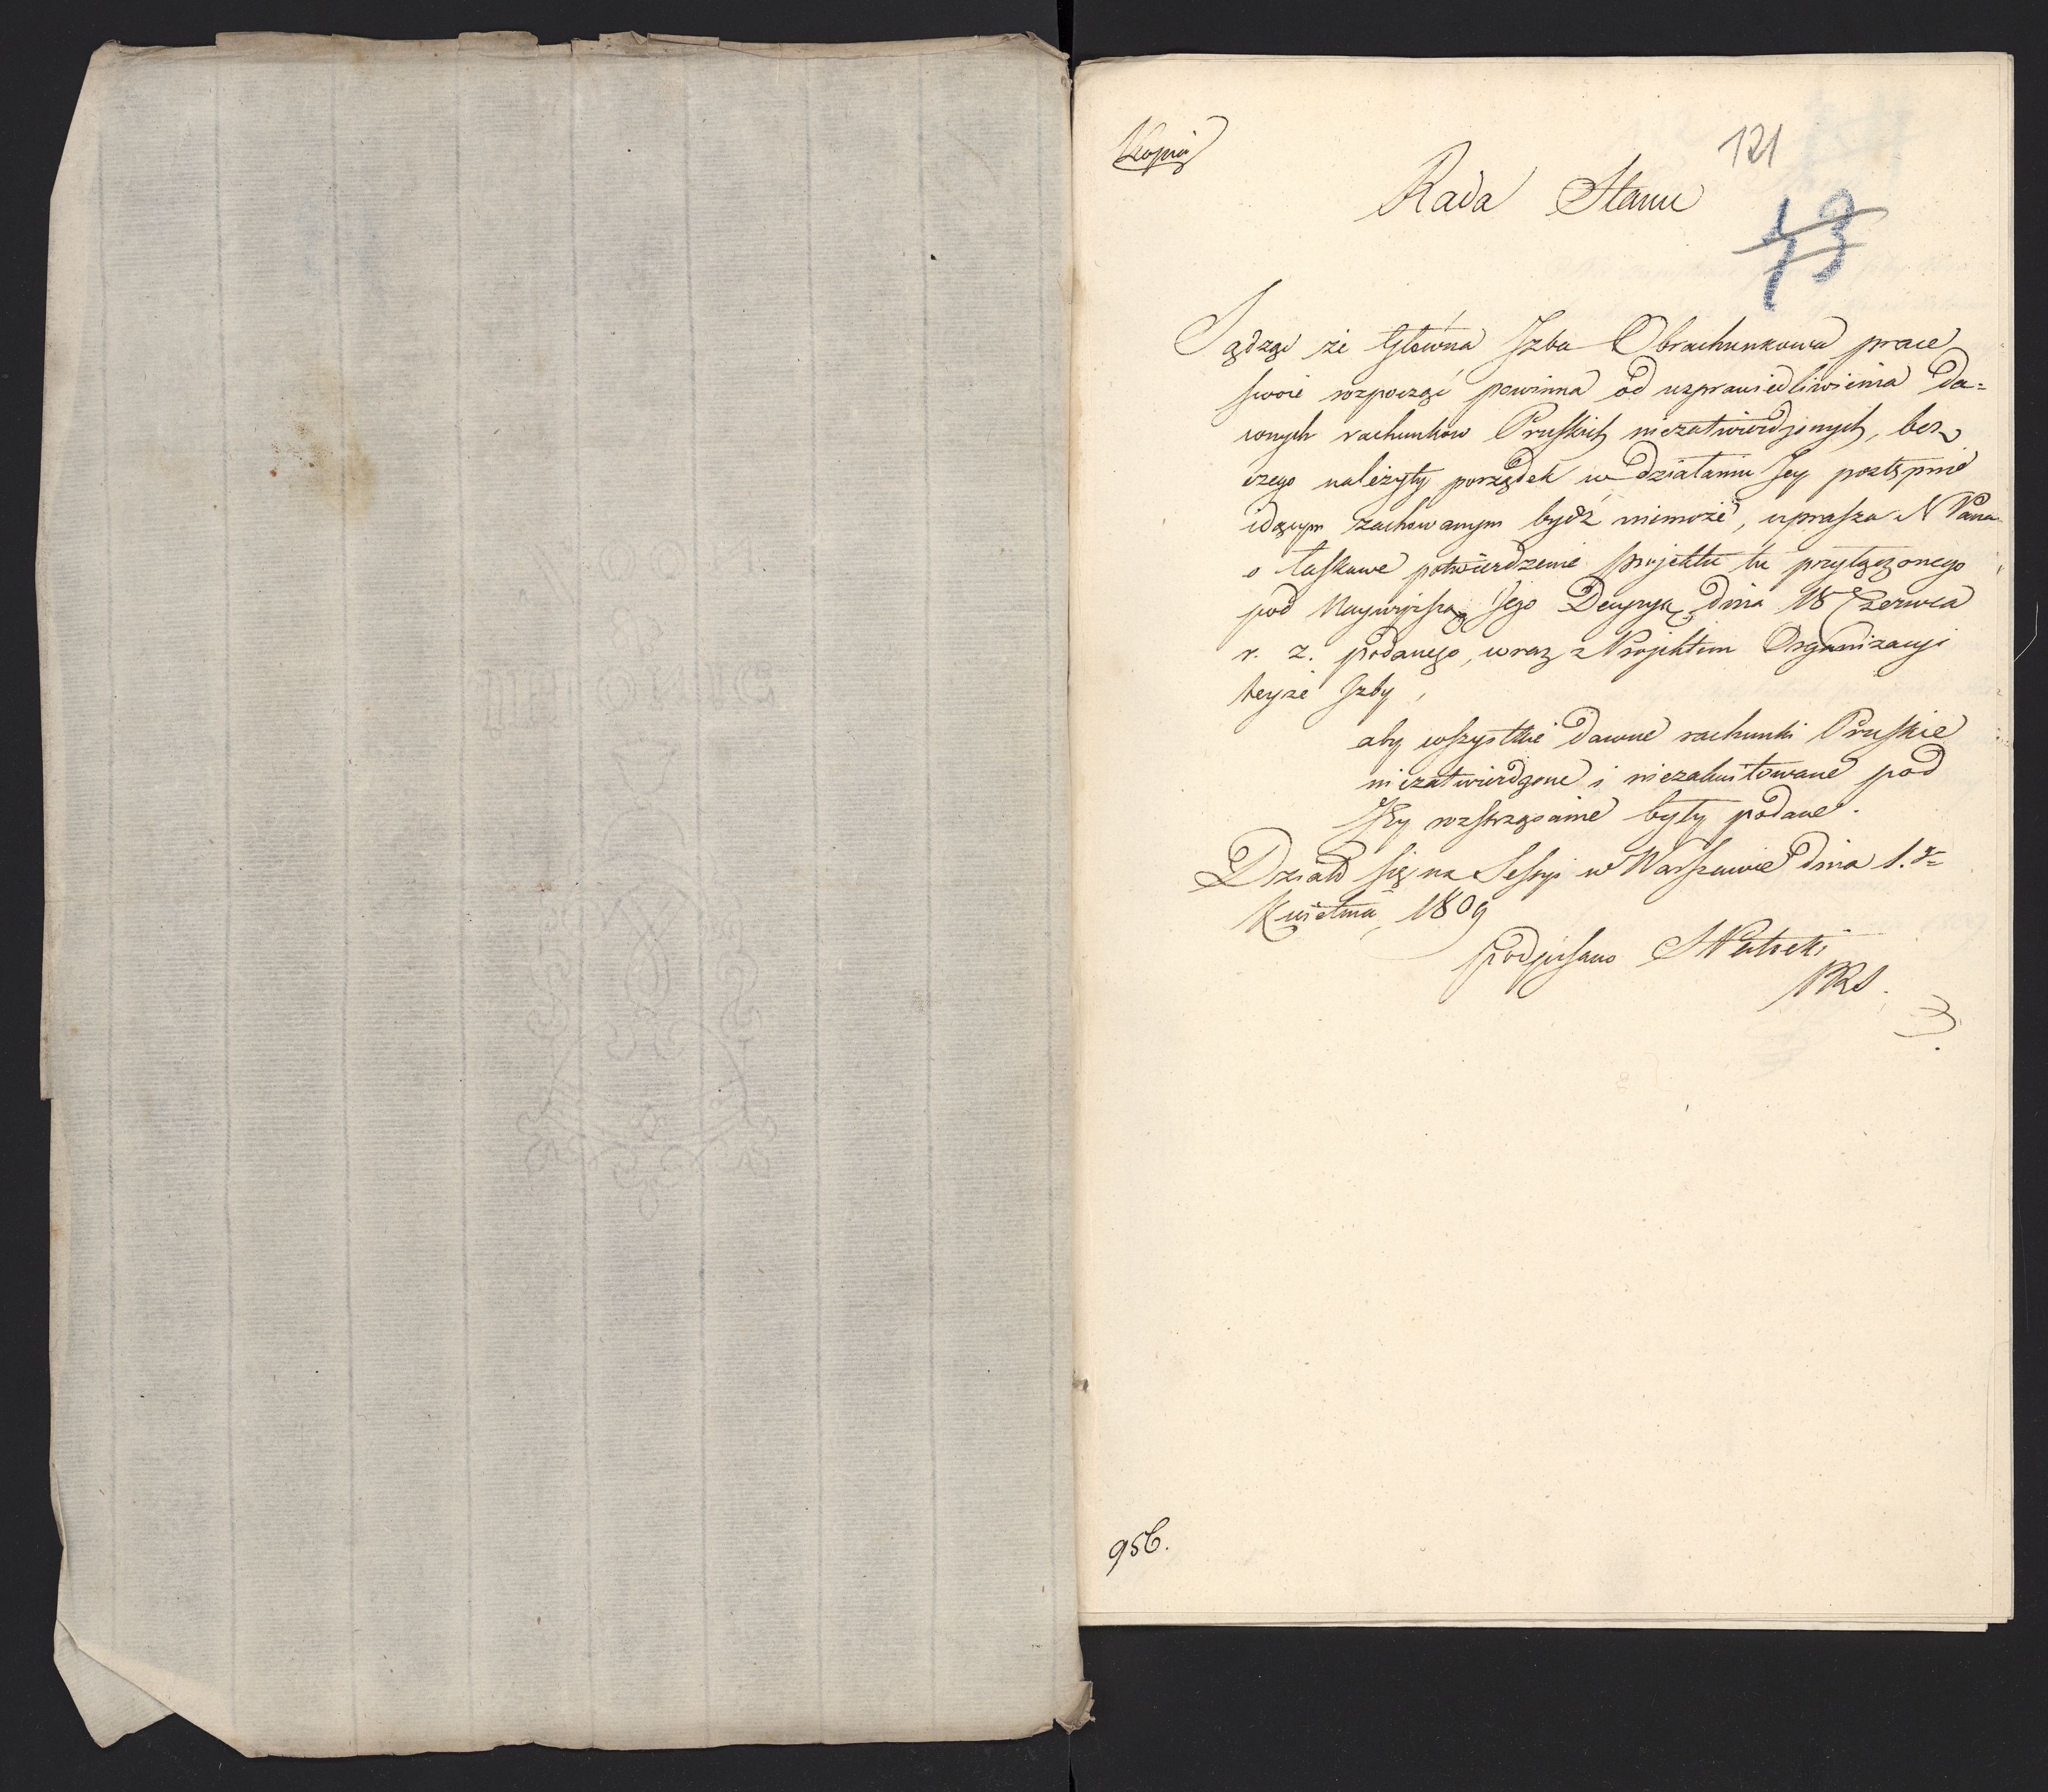 Kopia
121
Rada Stanu
73
Sądząc że Główna Izba Obrachunkowa prace
swoie rozpocząć powinna od usprawiedliwienia da=
wnych rachunków Pruskich niezatwierdzonych, bez
czego należyty porządek w działaniu Jey postępnie
idącym zachowanym bydź niemoże, uprasza N Pana
o łaskawe potwierdzenie projektu tu przyłączonego
pod Naywyższą Jego Decyzyą dnia 18 Czerwca
r. z. podanego, wraz z Projektem Organizacyi
teyże Izby,
aby wszystkie dawne rachunki Pruskie
niezatwierdzone i niezakwitowane pod
Jey rozstrząśnienie były podane.
Działo się na Sessyi w Warszawie dnia 1.
Kwietnia 1809
podpisano S Potocki
PRS.
956.